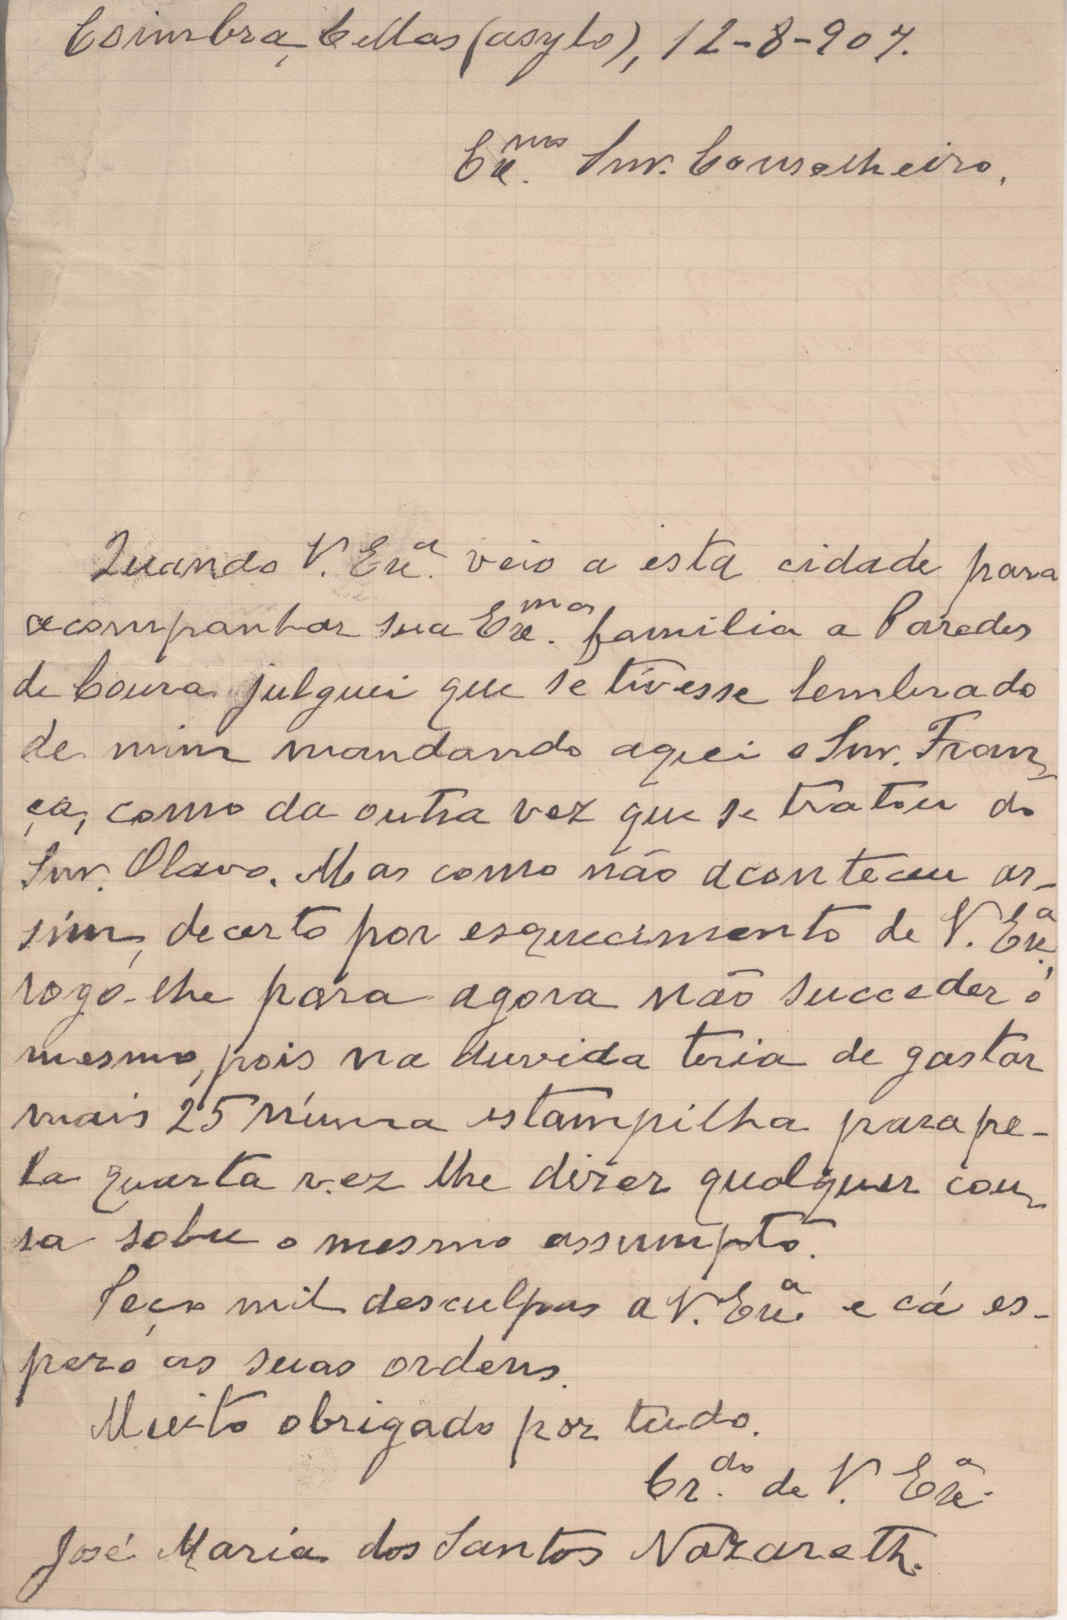 Coimbra, Cellas (asylo), 12-8-907.
Ex.mo Snr. Conselheiro,
Quando V. Ex.a veio a esta cidade para
acompanhar sua Ex.ma familia a Paredes
de Coura julguei que se tivesse lembrado
de mim mandando aqui o Snr. Fran-
ça, como da outra vez que se tratou do
Snr. Olavo. Mas como não aconteceu as-
sim, decerto por esquecimento de V. Ex.a,
rogo-lhe para agora não succeder o
mesmo, pois na duvida teria de gastar
mais 25 n'uma estampilha para pe-
la quarta vez lhe dizer qualquer cou-
sa sobre o mesmo assumpto.
Peço mil desculpas a V. Ex.a e cá es-
pero as suas ordens.
Muito obrigado por tudo.
Cr.do de V. Ex.a
José Maria dos Santos Nazareth.